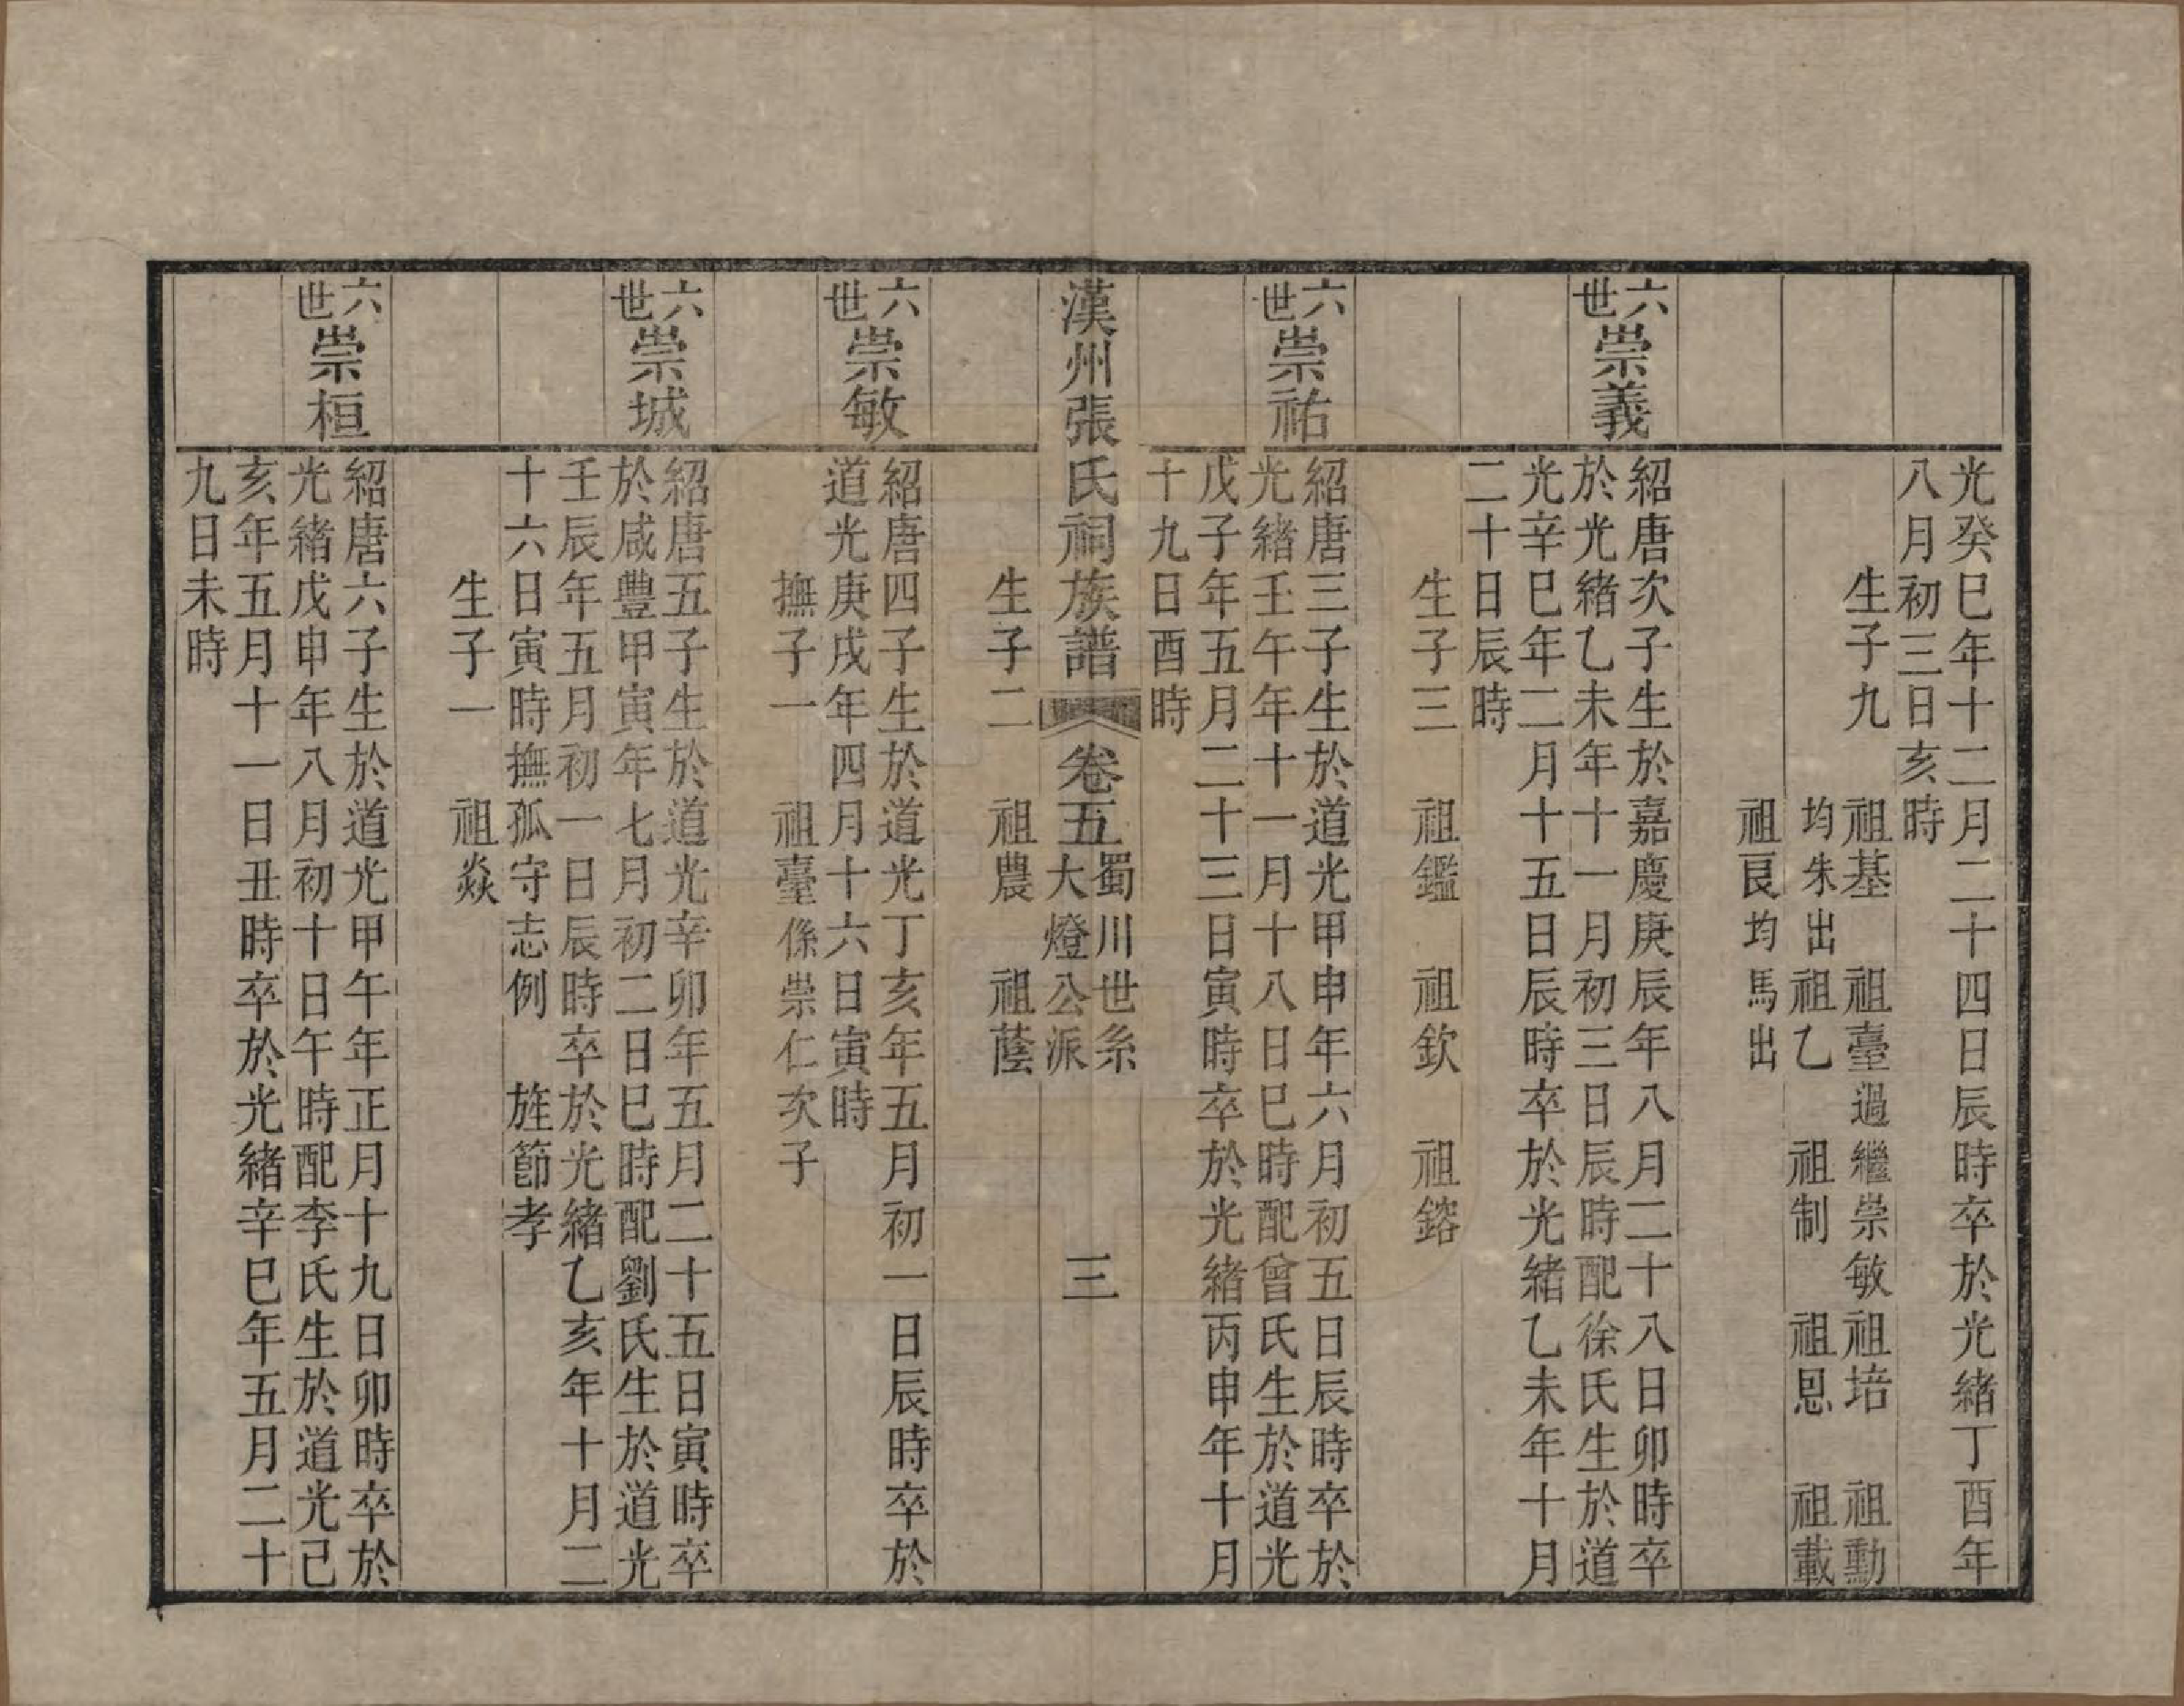 光癸巳年十二月二十四日辰時卒於光緒丁酉年
八月初三日亥時
生子九 祖基 祖臺過繼崇敏 祖培 祖勳
均朱出 祖乙 祖制 祖恩 祖載
祖良均馬出
六世崇義
紹唐次子生於嘉慶庚辰年八月二十八日卯時卒
於光緒乙未年十一月初三日辰時配徐氏生於道
光辛巳年二月十五日辰時卒於光緒乙未年十月
二十日辰時
生子三 祖鑑 祖欽 祖鎔
六世崇祐
紹唐三子生於道光甲申年六月初五日辰時卒於
光緒壬午年十一月十八日巳時配曾氏生於道光
戊子年五月二十三日寅時卒於光緒丙申年十月
十九日酉時
漢州張氏祠族譜 卷五 蜀川世系 大燈公派 三
生子二 祖農 祖蔭
六世崇敏
紹唐四子生於道光丁亥年五月初一日辰時卒於
道光庚戌年四月十六日寅時
撫子一 祖臺係崇仁次子
六世崇城
紹唐五子生於道光辛卯年五月二十五日寅時卒
於咸豐甲寅年七月初二日巳時配劉氏生於道光
壬辰年五月初一日辰時卒於光緒乙亥年十月二
十六日寅時撫孤守志例 旌節孝
生子一 祖焱
六世崇桓
紹唐六子生於道光甲午年正月十九日卯時卒於
光緒戊申年八月初十日午時配李氏生於道光己
亥年五月十一日丑時卒於光緒辛巳年五月二十
九日未時